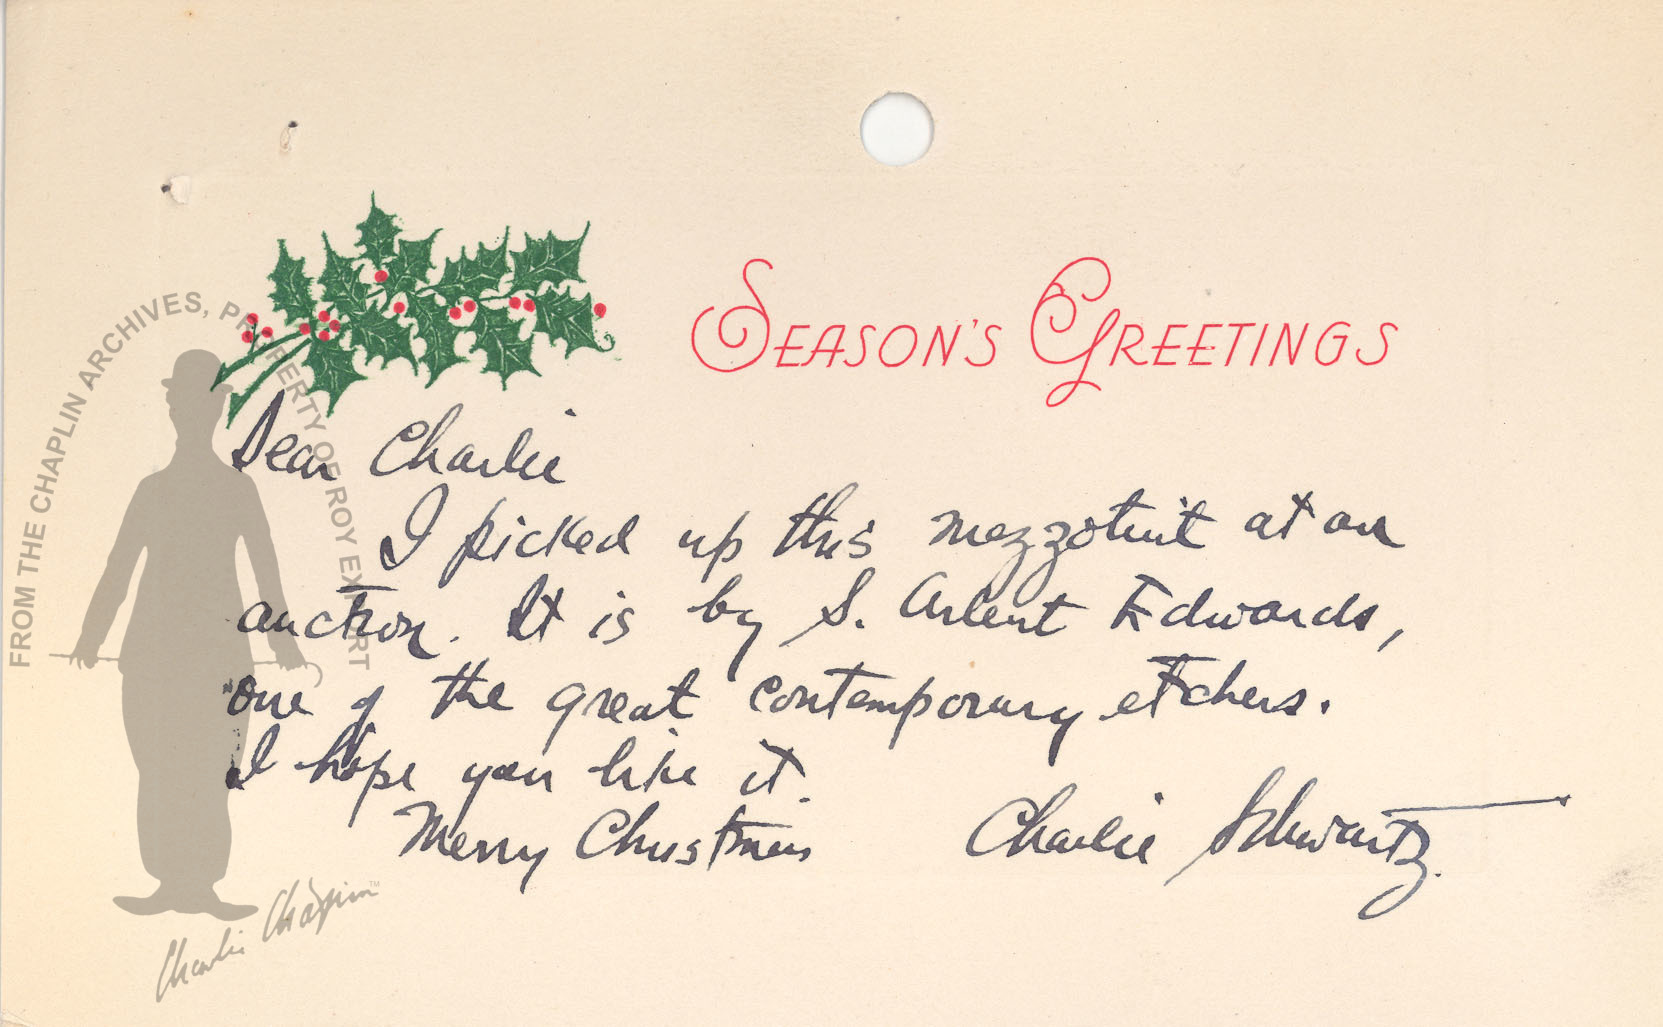 SEASON'S GREETINGS
Dear Charlie
I picked up this mezzotint at an
auction. It is by S. Arlent Edwards,
one of the great contemporary etchers.
I hope you like it.
Merry Christmas
Charlie Schwartz.
FROM THE CHAPLIN ARCHIVES, PROPERTY OF ROY EXPORT
Charlie Chaplin™